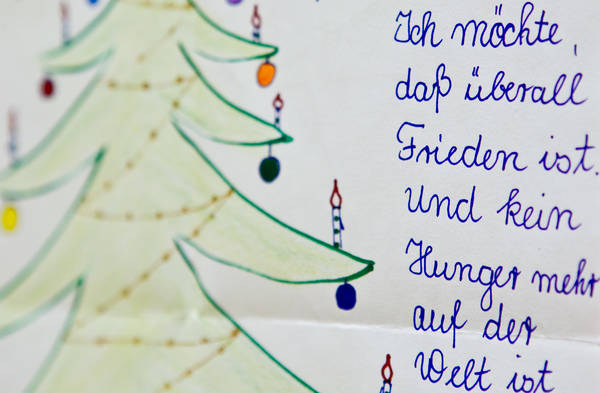 Ich möchte,
daß überall
Frieden ist.
Und kein
Hunger mehr
auf der
Welt ist